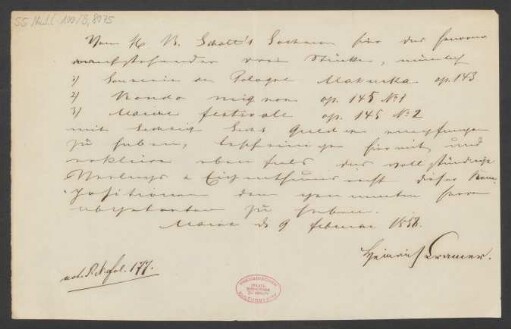 55 Nachl. 100/B, 8975
Von H B. Schott's Soehnen für das Honorar
nachstehender drei Stücke, nämlich
1) Souvenir de Pologne Mazurka op. 143
2) Rondo mignon op. 145 No 1
3) Marche festivale op. 145 No 2
mit Gulden empfangen
zu haben, bescheinige hiermit und
erkläre ebenfalls das vollständige
Verlags & Eigenthumsrecht dieser Kom-
positionen den genannten Herren
abgetreten zu haben.
Mainz d 9 Februar 1858.
Heinrich Cramer.
fol. 177.